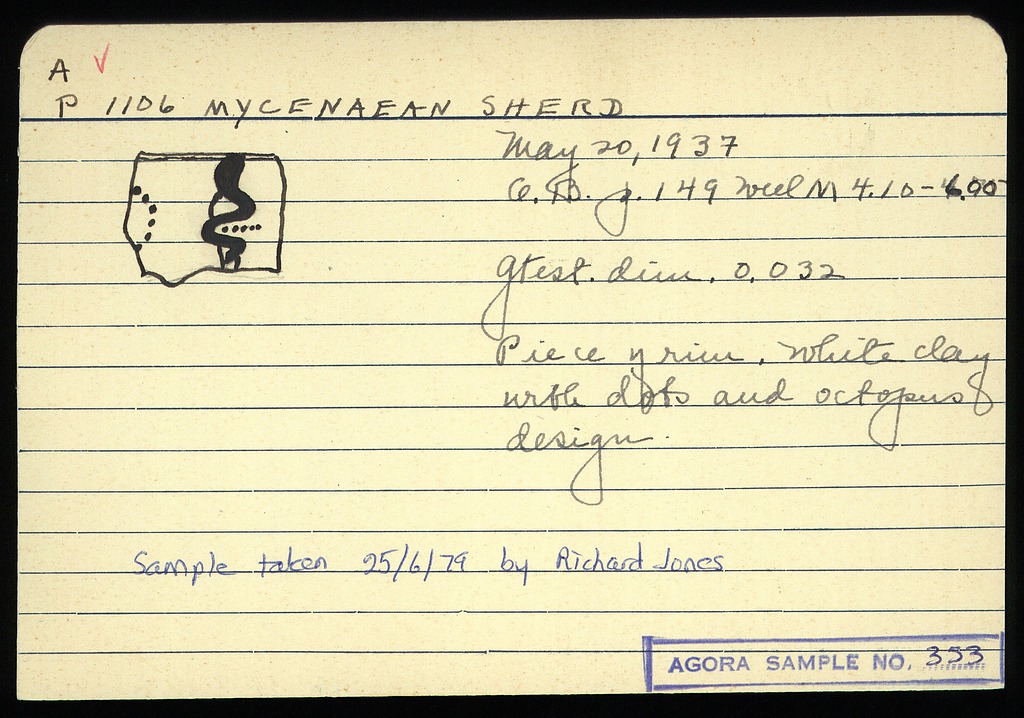 A ✓
P 1106 MYCENAEAN SHERD
May 20, 1937
p. 149 Well M 4.10-6.00
Gtest. dim. 0.032
Piece of rim. White clay
with dots and octopus
design.
Sample taken 25/6/79 by Richard Jones
AGORA SAMPLE NO. 353